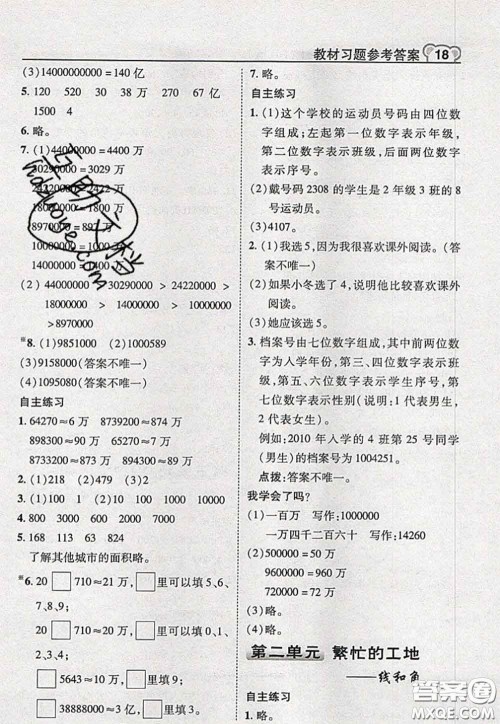 教材习题参考答案 18
(3)14000000000=140亿
5. 120 520 30 38万 270 67亿
1500 4
6. 略。
7. (1)44000000=4400万
30290000=3029万
24220000=2422万
18000000=1800万
8970000=897万
10000000=1000万
14000000=1400万
(2) 44000000>30290000>24220000
>18000000>14000000>10000000
>8970000
※8. (1)9851000 (2)1000589
(3)9158000(答案不唯一)
(4)1095080(答案不唯一)
自主练习
1. 64270≈6万 873940≈87万
898300≈90万 65370≈7万
8733200≈873万 8974300≈897万
2. (1)218 (2)479 (3)2
3. (1)10 100 1000 (2)10 100 1000
4. 800 3000 7000 6000
5. 168 113 63 824
了解其他城市的面积略。
※6. 20□710≈21万,□里可以填5、6、
7、8、9;
20□710≈20万,□里可填0、1、
2、3、4;
38888000≈3亿,□里可填0、
7. 略。
自主练习
1. (1)这个学校的运动员号码由四位数字
组成;左起第一位数字表示年级,
第二位数字表示班级,后面两位数字
表示序号。
(2)戴号码2308的学生是2年级3班的8号
运动员。
(3)4107。
2. (1)我选5,因为我很喜欢课外阅读。(答
案不唯一)
(2)如果小冬选了4,说明他比较喜欢课外
阅读。
(3)她应该选5。
3. 档案号由七位数字组成,其中前两位数字
为入学年份,第三、四位数字表示班
级,第五、六位数字表示学生序号,第
七位数字表示性别(1代表男生,
2代表女生)。
例如:2010年入学的4班第25号同学
(男生)的档案号为1004251。
点拨:答案不唯一。
我学会了吗?
(1)一百万 写作:1000000
一万四千二百六十 写作:14260
(2)500000=50万
9600000=960万
3000000=300万
(3)略。
(4)略。
第二单元 繁忙的工地
——线和角
自主练习
1. 略。
答案圈
MXQE.COM